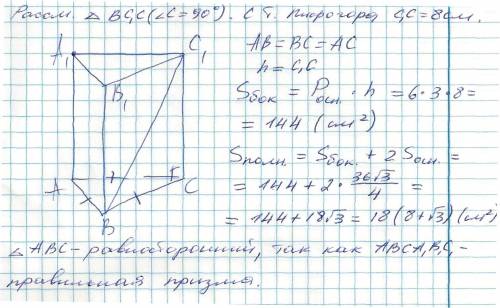 Рассм. △ BC₁C (∠C = 90°). С т. Пифагора C₁C = 8 см.
A₁
C₁
B₁
A
C
B
AB = BC = AC
h = C₁C
Sбок = Pосн. · h = 6·3·8 =
= 144 (см²)
Sполн. = Sбок. + 2 Sосн. =
= 144 + 2 · 36√3/4 =
= 144 + 18√3 = 18(8+√3) (см²)
△ ABC – равносторонний, так как ABCA₁B₁C₁ –
правильная призма.